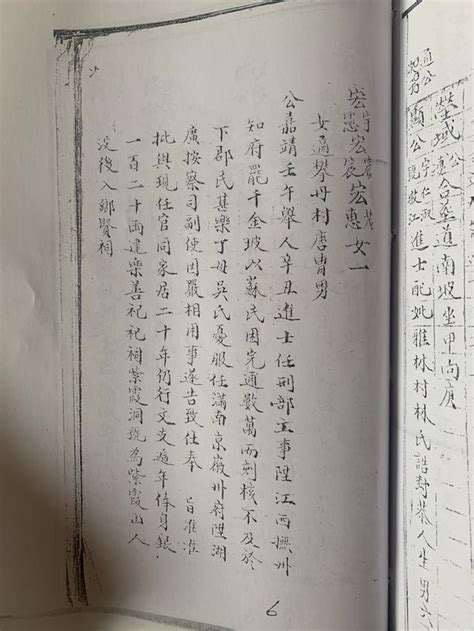 通公
塋域合葬道南坡坐甲向庚
顯公字仁淑
江進士配妣雅林村林氏誥封恭人生男六
宏宇宏宸宏茂
宏憲宏宸宏惠女一
女適攀丹村唐冑男
公嘉靖壬午舉人辛丑進士任刑部主事陞江西撫州
知府罷千金坡以蘇民困完逋數萬兩刻核不及於
下郡民甚樂丁母吳氏憂服任滿南京山徽州府陞湖
廣按察司副使因嚴相用事遂告致仕奉　旨准准
批與現任官同家居二十年仍行文支逓年俸身銀
一百二十兩建樂善祀祀祠紫霞洞號為紫霞山人
没後入鄉賢祠
6